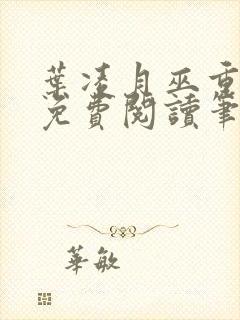 葉凌月巫重
免費閱讀筆
華敏